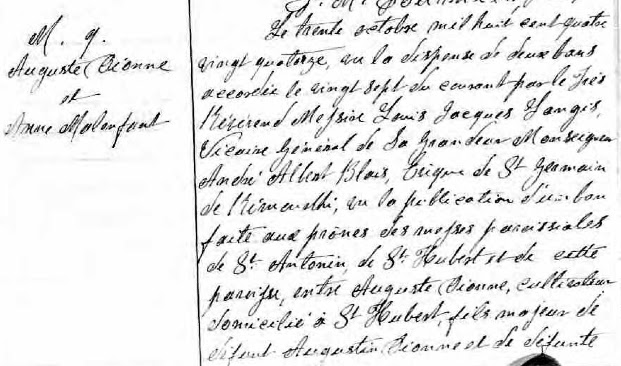 M. 9.
Auguste Dionne
et
Anne Malenfant
Le trente octobre mil huit cent quatre
vingt quatorze, vu la dispense de deux bans
accordée le vingt sept du courant par le Très
Révérend Messire Louis Jacques Langis,
Vicaire Général de Sa Grandeur Monseigneur
André Albert Blais, Evêque de St Germain
de Rimouski, vu la publication d'un ban
faite aux prônes des messes paroissiales
de St. Antonin, de St. Hubert et de cette
paroisse, entre Auguste Dionne, cultivateur
domicilié à St Hubert, fils majeur de
défunt Augustin Dionne et de défunte